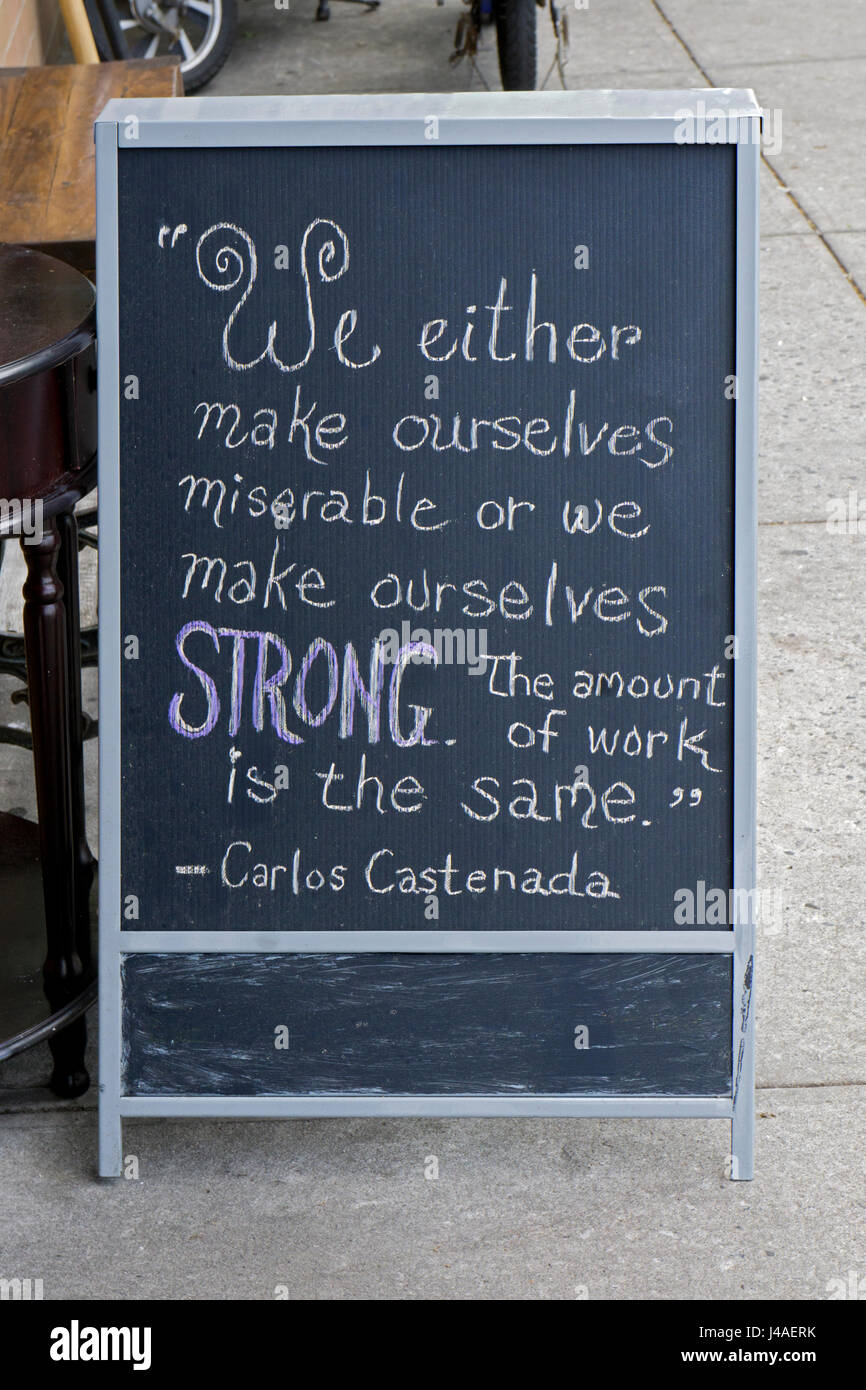 “We either
make ourselves
miserable or we
make ourselves
STRONG. The amount
of work
is the same.”
- Carlos Castenada
alamy
Image ID: J4AERK
www.alamy.com